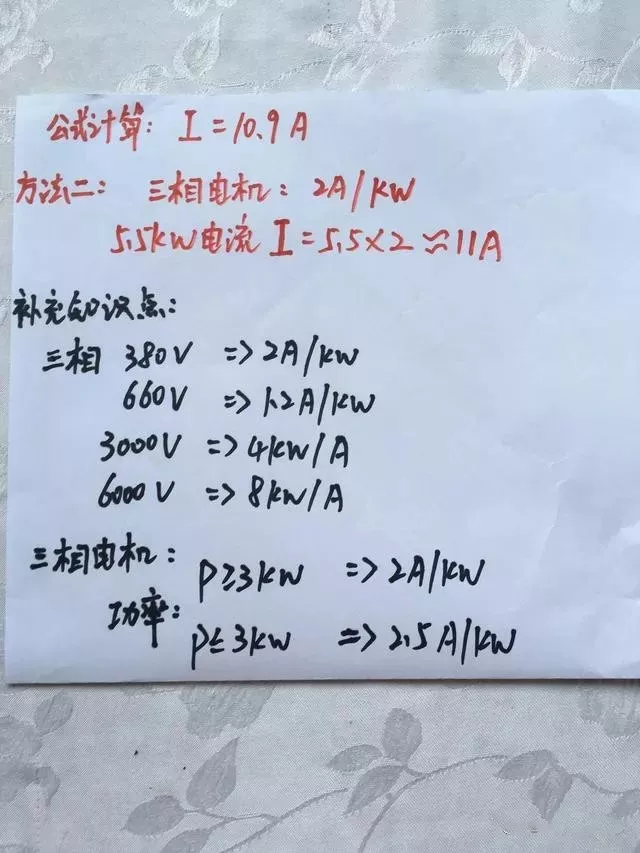 公式计算: I=10.9A
方法二: 三相电机: 2A/KW
5.5KW电流 I=5.5×2≈11A
补充知识点:
三相 380V => 2A/KW
660V => 1.2A/KW
3000V => 4KW/A
6000V => 8KW/A
三相电机: P≥3KW => 2A/KW
功率: P≤3KW => 2.5A/KW